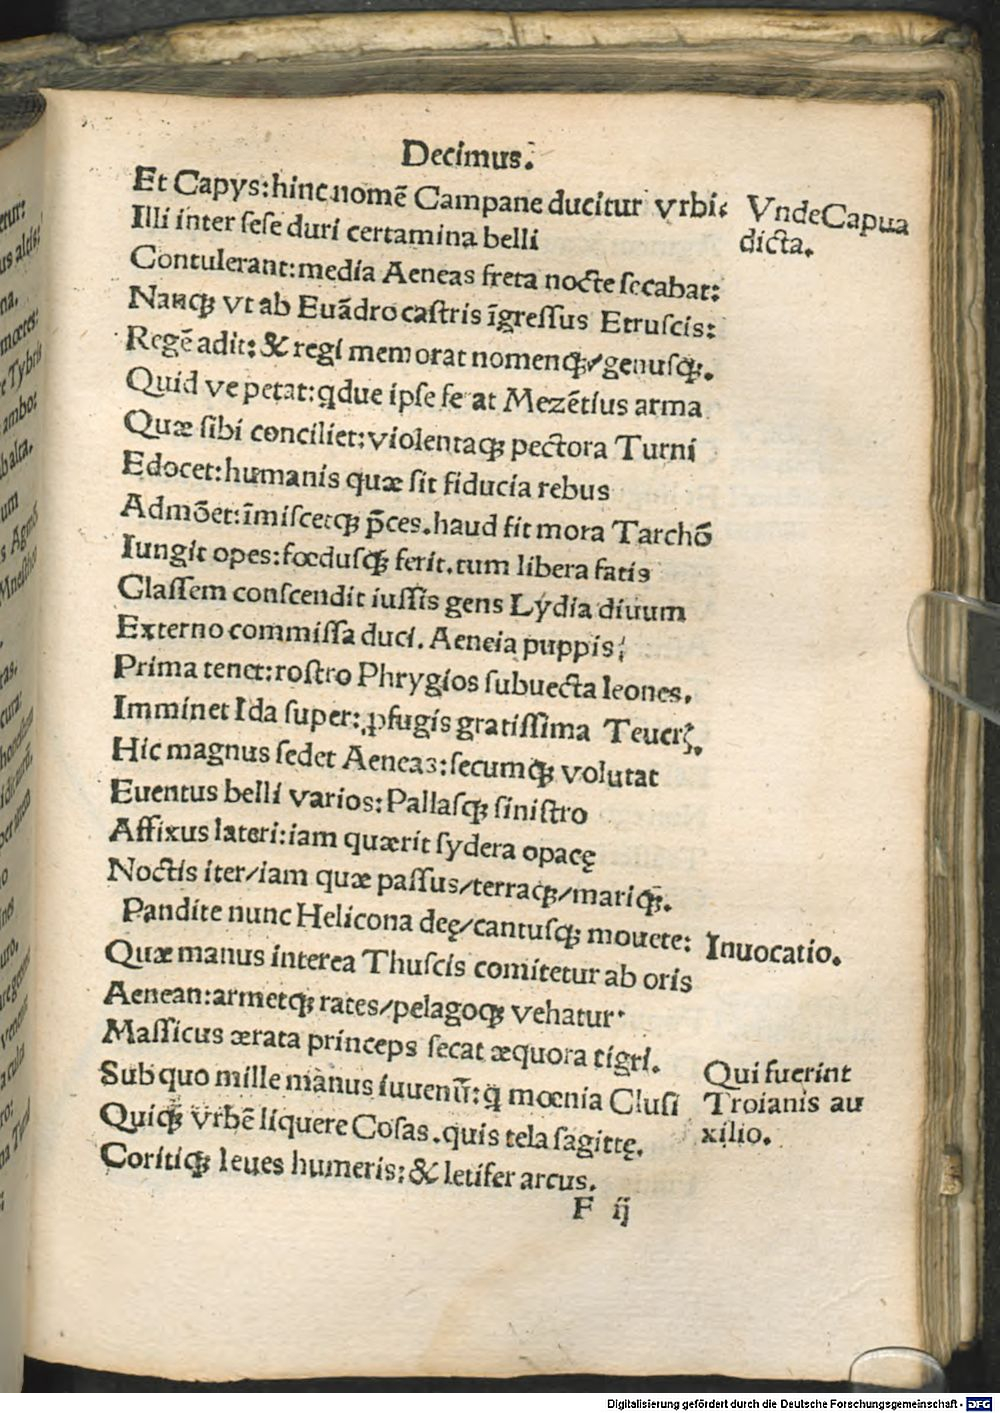 Decimus.
Et Capys:hinc nomē Campane ducitur vrbi:
VndeCapua
dicta.
Illi inter ſeſe duri certamina belli
Contulerant:media Aeneas freta nocte ſecabat:
Nanqꝫ vt ab Euādro caſtris īgreſſus Etruſcis:
Regē adit:& regi memorat nomenqꝫ/genuſqꝫ.
Quid ve petat:qdue ipſe ferat Mezētius arma
Quæ ſibi conciliet:violentaqꝫ pectora Turni
Edocet:humanis quæ ſit fiducia rebus
Admōet:īmiſcetqꝫ p̄ces.haud fit mora Tarchō
Iungit opes:fœduſqꝫ ferit.tum libera fatis
Claſſem conſcendit iuſſis gens Lydia diuum
Externo commiſſa duci. Aeneia puppis:
Prima tenet:roſtro Phrygios ſubuecta leones.
Imminet Ida ſuper:ꝓfugis gratiſſima Teucrꝝ.
Hic magnus ſedet Aeneas:ſecumqꝫ volutat
Euentus belli varios:Pallaſqꝫ ſiniſtro
Affixus lateri:iam quærit ſydera opacę
Noctis iter/iam quæ paſſus/terraqꝫ/mariqꝫ.
Pandite nunc Helicona deę/cantuſqꝫ mouete:
Inuocatio.
Quæ manus interea Thuſcis comitetur ab oris
Aenean:armetqꝫ rates/pelagoqꝫ vehatur.
Maſſicus ærata princeps ſecat æquora tigri.
Sub quo mille manus iuuenū:q̄ mœnia Cluſi
Qui fuerint
Troianis au
xilio.
Quiqꝫ vrbē liquere Coſas.quis tela ſagittę.
Coritiqꝫ leues humeris:& letifer arcus.
F ij
Digitalisierung gefördert durch die Deutsche Forschungsgemeinschaft - DFG